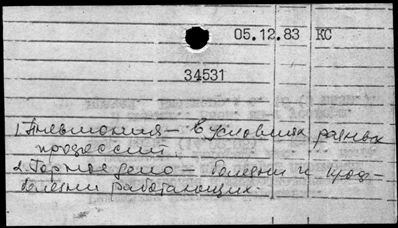 05.12.83 КС
34531
1. Пневмония – в условиях разных
профессий.
2. Горное дело – болезни и проф-
болезни работающих.